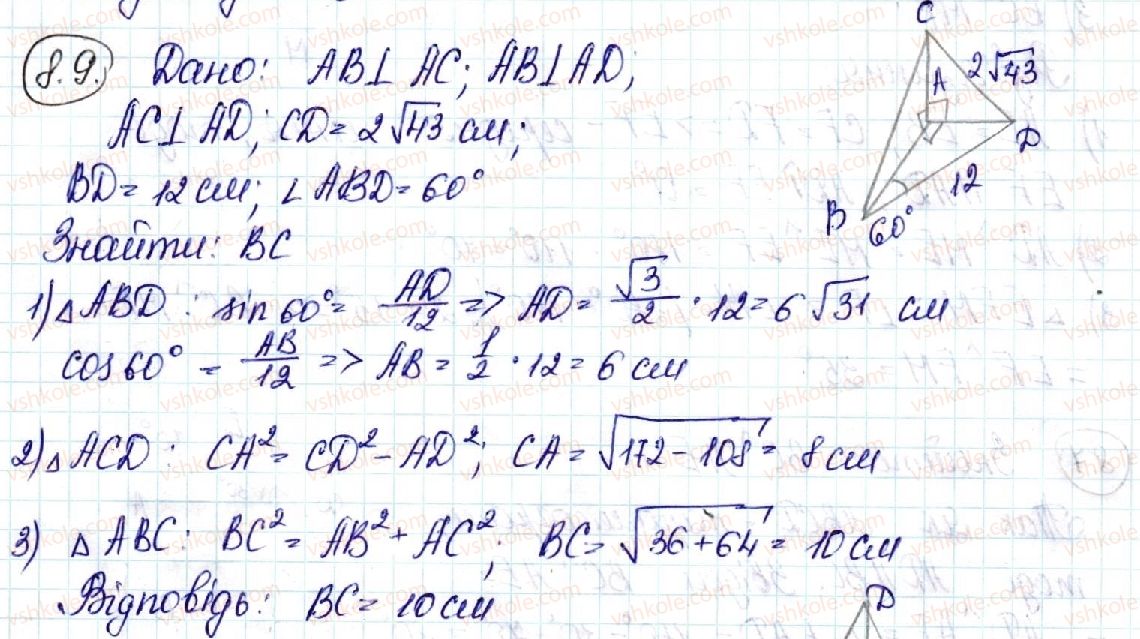 8.9. Дано: AB⊥AC; AB⊥AD;
AC⊥AD; CD = 2√43 см;
BD = 12 см; ∠ABD = 60°
Знайти: BC
1) △ABD: sin60° = AD/12 => AD = √3/2 · 12 = 6√31 см
cos60° = AB/12 => AB = 1/2 · 12 = 6 см
2) △ACD: CA² = CD² - AD²; CA = √172 - 108 = 8 см
3) △ABC: BC² = AB² + AC²; BC = √36 + 64 = 10 см
Відповідь: BC = 10 см
C
A
2√43
D
12
B
60°
D
vshkole.com